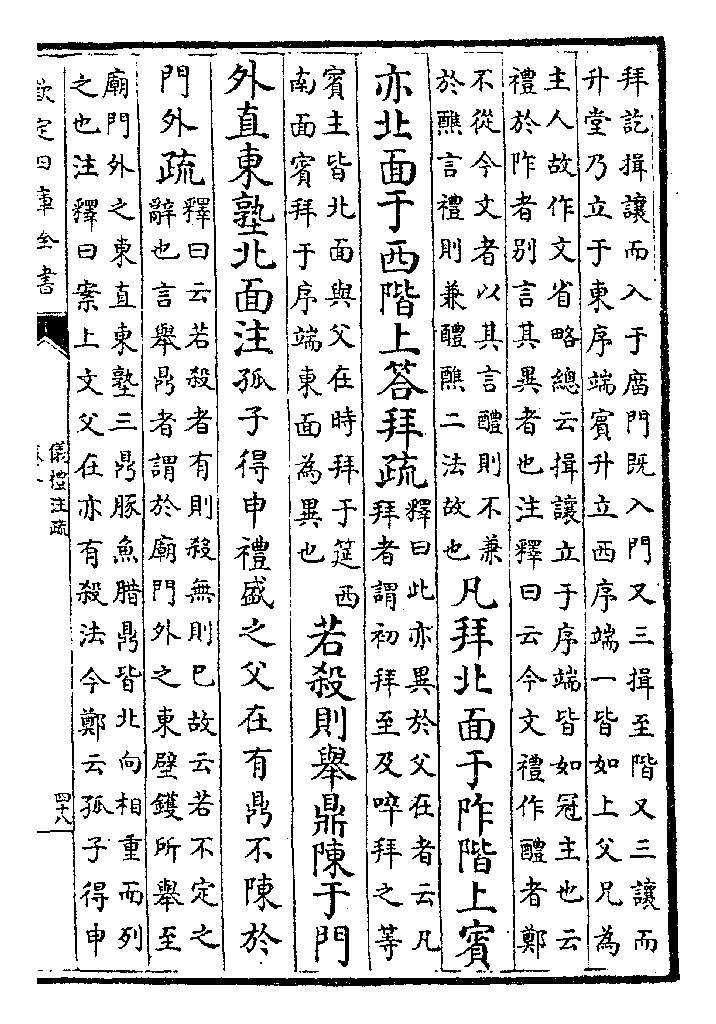 拜訖揖讓而入于廟門既入門又三揖至階又三讓而
升堂乃立于東序端賓升立西序端一皆如上父兄為
主人故作文省略總云揖讓立于序端皆如冠主也云
禮於阼者别言其異者也注釋曰云今文禮作醴者鄭
不從今文者以其言醴則不兼
於醮言禮則兼醴醮二法故也
凡拜北面于阼階上賓
亦北面于西階上答拜疏
釋曰此亦異於父在者云凡
拜者謂初拜至及啐拜之等
賓主皆北面與父在時拜于筵西
南面賓拜于序端東面為異也
若殺則舉鼎陳于門
外直東塾北面注孤子得申禮盛之父在有鼎不陳於
門外疏
釋曰云若殺者有則殺無則已故云若不定之
辭也言舉鼎者謂於廟門外之東壁鑊所舉至
廟門外之東直東塾三鼎豚魚腊鼎皆北向相重而列
之也注釋曰案上文父在亦有殺法今鄭云孤子得申
欽定四庫全書
儀禮注疏
四十八